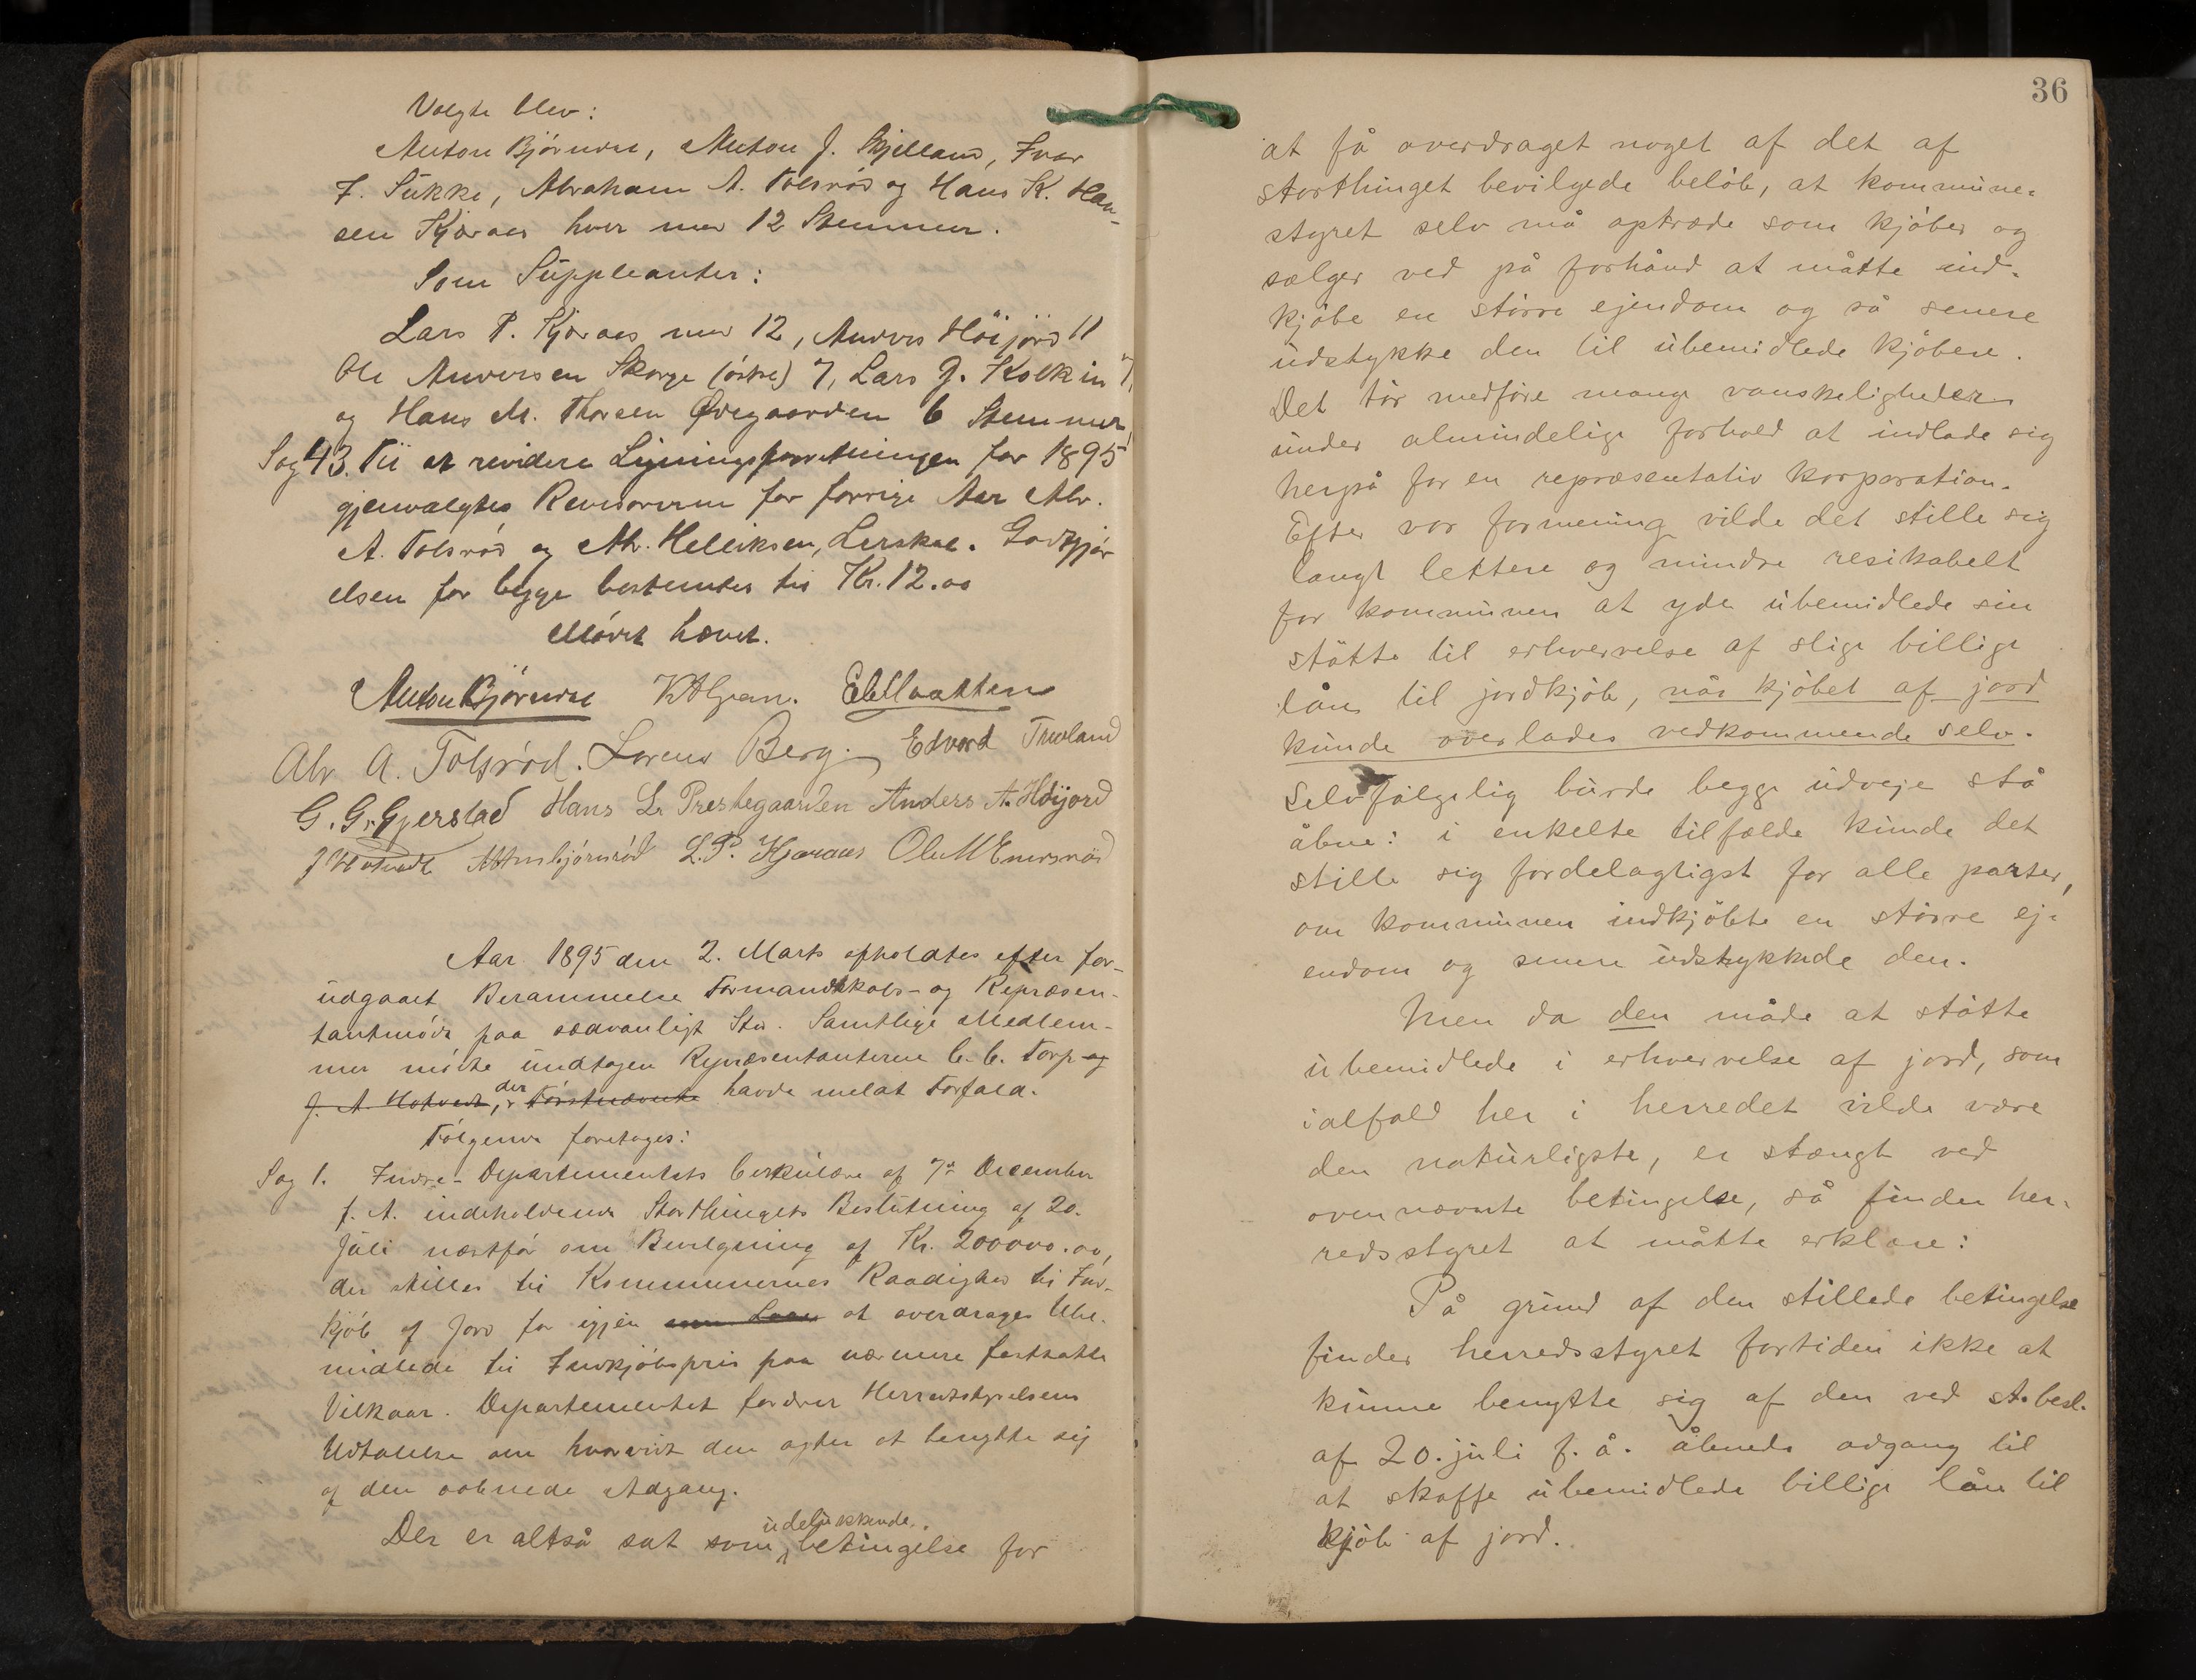 Valgte blev:
Anton Bjørndal, Anton J. Skjelland, Ivar
F. Sukke, Abraham A. Tolsrød og Hans K. Han-
sen Kjæraas hver med 12 Stemmer.
Som Suppleanter:
Lars P. Kjæraas med 12, Anders Höijord 11
Ole Andersen Skorge (østre) 7, Lars J. Kolkin 7,
og Hans M. Thorsen Ødegaarden 6 Stemmer.
Sag 43. Til at revidere Ligningsforretningen for 1895
gjenvalgtes Revisorerne for forrige Aar Abr.
A. Tolsrød og Mr. Helliksen, Lerskal. Godtgjør
elsen for begge bestemtes til Kr. 12.00
Mødet hævet.
Anton Bjørndal
Abr A. Tolsrød. Lorens Berg. Edvard
G. Gr. Gjerstad Hans L. Prestegaarden Anders A. Höijord
J Hotvedt L. P. Kjæraas Ole M Enersrød
Aar 1895 den 2. Marts afholdtes efter for-
udgaaet Berammelse Formandskabs- og Repræsen-
tantmøde paa sædvanligt Sted. Samtlige Medlem-
mer mødte undtagen Repræsentanterne C. C. Torp og
J. A. Hotvedt, der Førstnævnte havde meldt Forfald.
Følgende foretoges:
Sag 1. Indre-Departementets Cirkulære af 7de December
f. A. indeholdende Storthingets Beslutning af 20.
Juli næstfør om Bevilgning af Kr. 200000.00,
der stilles til Kommunernes Raadighed til Ind-
kjøb af Jord for igjen som Laan at overdrages Ube-
midlede til Indkjøbspris paa nærmere fastsatte
Vilkaar. Departementet fordrer Herredsstyrelsens
Udtalelse om hvorvidt den agter at benytte sig
af den aabnede Adgang.
Der er altså sat som udelukkende betingelse for
36
at få overdraget noget af det af
storthinget bevilgede beløb, at kommune-
styret selv må optræde som kjøber og
sælger ved på forhånd at måtte ind-
kjøbe en større ejendom og så senere
udstykke den til ubemidlede kjøbere.
Det tør medføre mange vanskeligheder
under almindelige forhold at indlade sig
herpå for en repræsentativ korporation.
Efter vor formening vilde det stille sig
langt lettere og mindre resikabelt
for kommunen at yde ubemidlede sin
støtte til erhvervelse af slige billige
lån til jordkjøb, når kjøbet af jord
kunde overlades vedkommende selv.
Selvfølgelig burde begge udveje stå
åbne: i enkelte tilfælde kunde det
stille sig fordelagtigst for alle parter,
om kommunen indkjøbte en større ej-
endom og senere udstykkede den.
Men da den måde at støtte
ubemidlede i erhvervelse af jord, som
ialfald her i herredet vilde være
den naturligste, er stængt ved
ovennævnte betingelse, så finder her-
redsstyret at måtte erklære:
På grund af den stillede betingelse
finder herredsstyret fortiden ikke at
kunne benytte sig af den ved st. besl.
af 20. juli f. å. åbnede adgang til
at skaffe ubemidlede billige lån til
kjøb af jord.